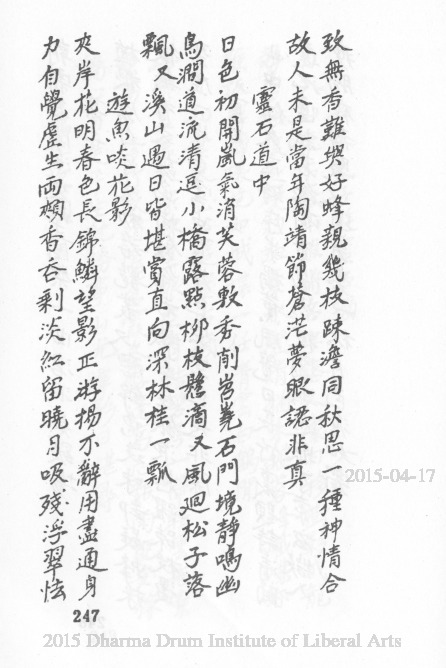 致無香難與好蜂親幾枝疎澹同秋思一種神情合
故人未是當年陶靖節蒼茫夢眼認非真
靈石道中
日色初開嵐氣消芙蓉敷秀削岧嶤石門境靜鳴幽
鳥澗道流清逗小橋露點柳枝髼滴又風迴松子落
飄又溪山過日皆堪賞直向深林桂一瓢
遊魚啖花影
夾岸花明春色長錦鱗望影正游揚不辭用盡通身
力自覺虛生兩頰香吞剩淡紅留曉月吸殘浮翠怯
247
2015-04-17
2015 Dharma Drum Institute of Liberal Arts